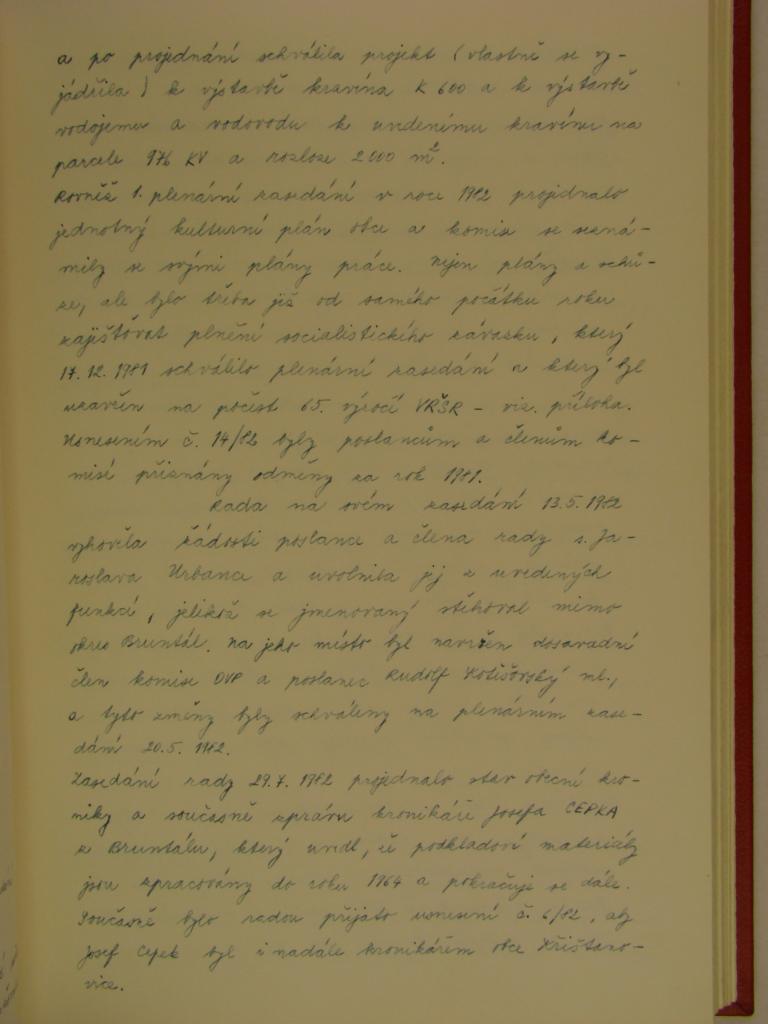 a po projednání schválila projekt (vlastně se vy-
jádřila) k výstavbě kravína K 600 a k výstavbě
vodojemu a vodovodu k uvedenému kravínu na
parcele 976 KV a rozloze 2 000 m².
Rovněž 1. plenární zasedání v roce 1982 projednalo
jednotný kulturní plán obce a komise se sezná-
mily se svými plány práce. Nejen plány a schů-
ze, ale bylo třeba již od samého počátku roku
zajišťovat plnění socialistického závazku, který
17.12.1981 schválilo plenární zasedání a který byl
uzavřen na počest 65. výročí VŘSR - viz. příloha.
Usnesením č. 14/82 byly poslancům a členům ko-
misí přiznány odměny za rok 1981.
Rada na svém zasedání 13.5.1982
vyhověla žádosti poslance a člena rady s. Ja-
roslava Urbance a uvolnila jej z uvedených
funkcí, jelikož se jmenovaný stěhoval mimo
okres Bruntál. Na jeho místo byl navržen dosavadní
člen komise OVP a poslanec Rudolf ml.,
a tyto změny byly schváleny na plenárním zase-
dání 20.5.1982.
Zasedání rady 29.7.1982 projednalo stav obecní kro-
niky a současně zprávu kronikáře Josefa CEPKA
z Bruntálu, který uvedl, že podkladové materiály
jsou zpracovány do roku 1964 a pokračuje se dále.
Současně bylo radou přijato usnesení č. 6/82, aby
Josef Cepek byl i nadále kronikářem obce Křišťano-
vice.